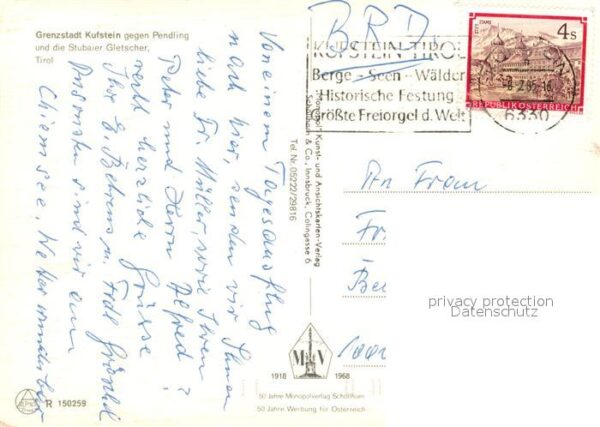 Grenzstadt Kufstein gegen Pendling
und die Stubaier Gletscher,
Tirol
BRD.
KUFSTEIN-TIROL
Berge - Seen - Wälder
Historische Festung
Größte Freiorgel d. Welt
6330
STIFT STAMS
4 S
REPUBLIK ÖSTERREICH
Von einem Tagesausflug
nach hier, senden wir Ihnen
liebe Fr. Müller, sowie Ihren
Peter und Herrn Alfred
recht herzliche Grüsse
Ihre E. Behrens u.
Ansonsten sind wir am
Chiemsee,
"Monopol" Kunst- und Ansichtskarten-Verlag
Schöllhorn & Co., Innsbruck, Colingasse 6
Tel. Nr. 05222/29816
An Frau
privacy protection
Datenschutz
M V
1918 1968
50 Jahre Monopolverlag Schöllhorn
50 Jahre Werbung für Österreich
R 150259